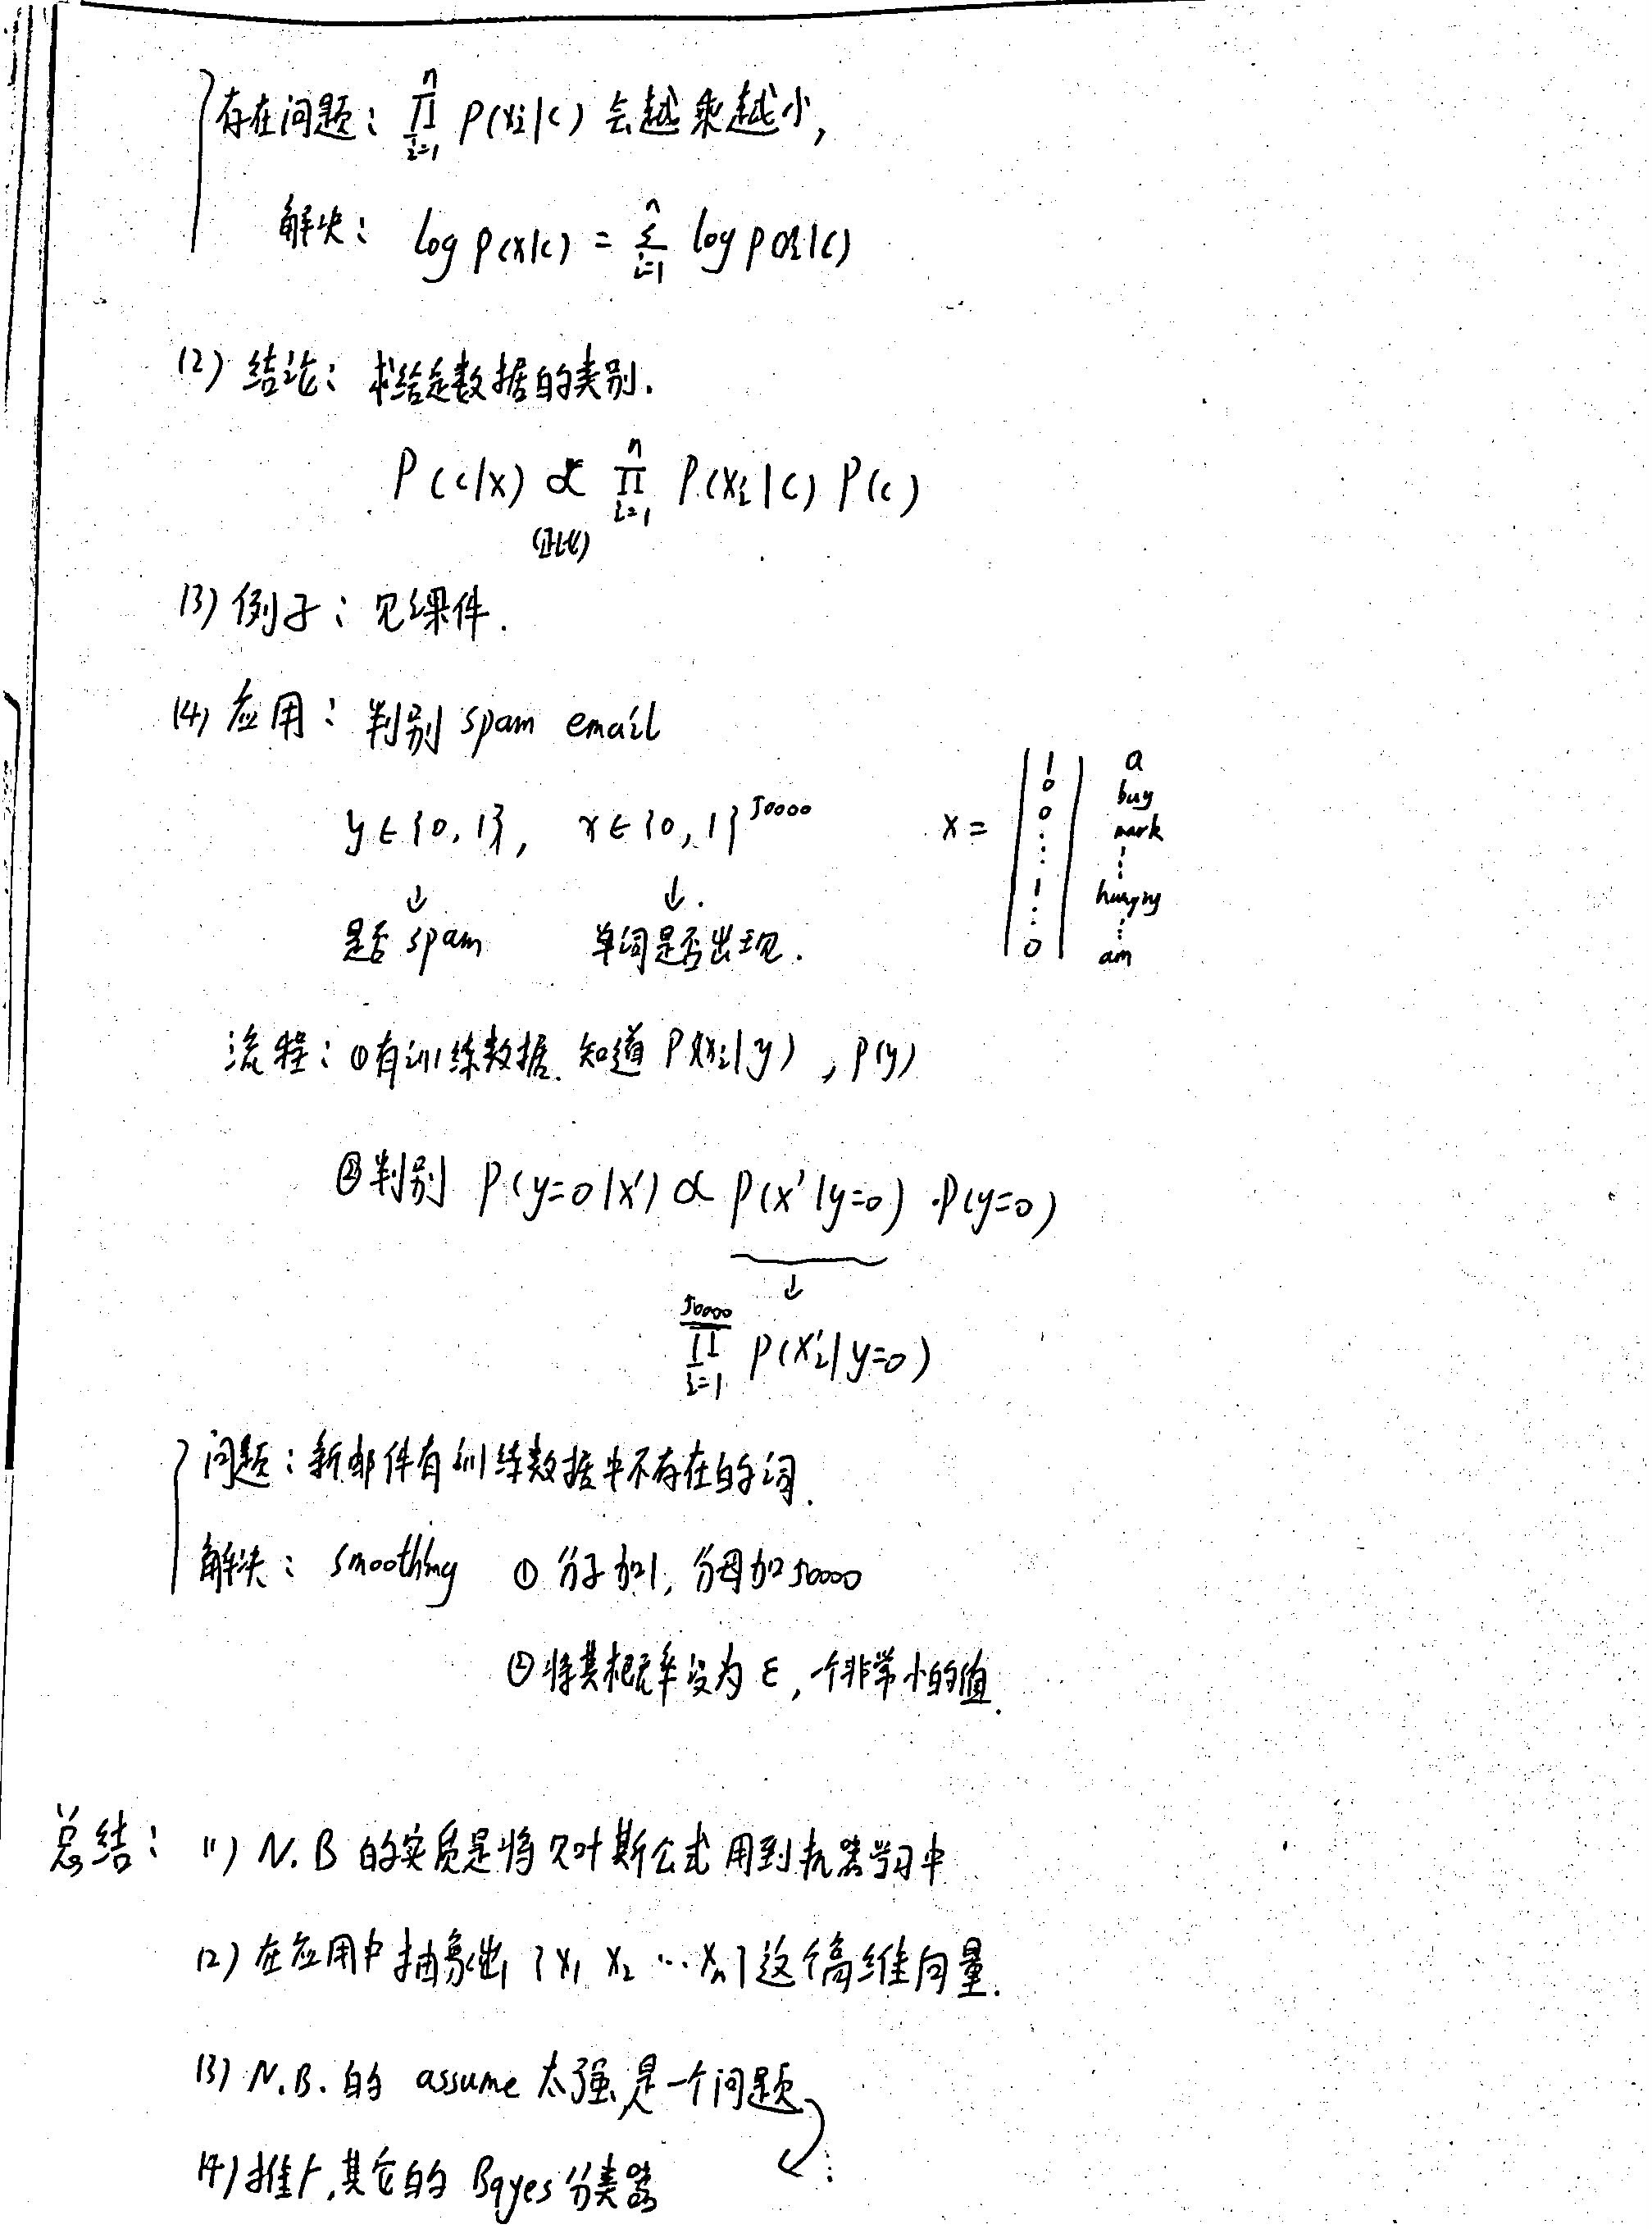 存在问题: ∏_{i=1}^{n} P(xi|c) 会越乘越小,
解决: log P(x|c) = Σ_{i=1}^{n} log P(xi|c)
(2) 结论: 求给定数据的类别.
P(c|x) ∝ ∏_{i=1}^{n} P(xi|c) P(c)
(正比)
(3) 例子: 见课件.
(4) 应用: 判别 spam email
y∈{0,1}, x∈{0,1}^50000 x = | 1 0 0 ⋮ 1 ⋮ 0 | a buy mark ⋮ ⋮ am
↓ ↓
是否 spam 单词是否出现.
流程: ①有训练数据. 知道 P(xi|y), P(y)
②判别 P(y=0|x') ∝ P(x'|y=0)·P(y=0)
↓
∏_{i=1}^{50000} P(x'i|y=0)
问题: 新邮件有训练数据中不存在的词.
解决: smoothing ① 分子加1, 分母加50000
②将其概率设为 ε, 一个非常小的值.
总结: (1) N.B 的实质是将贝叶斯公式用到机器学习中
(2) 在应用中抽象出 {x1 x2 … xn} 这个高维向量.
(3) N.B. 的 assume 太强,是一个问题
(4) 推广,其它的 Bayes 分类器